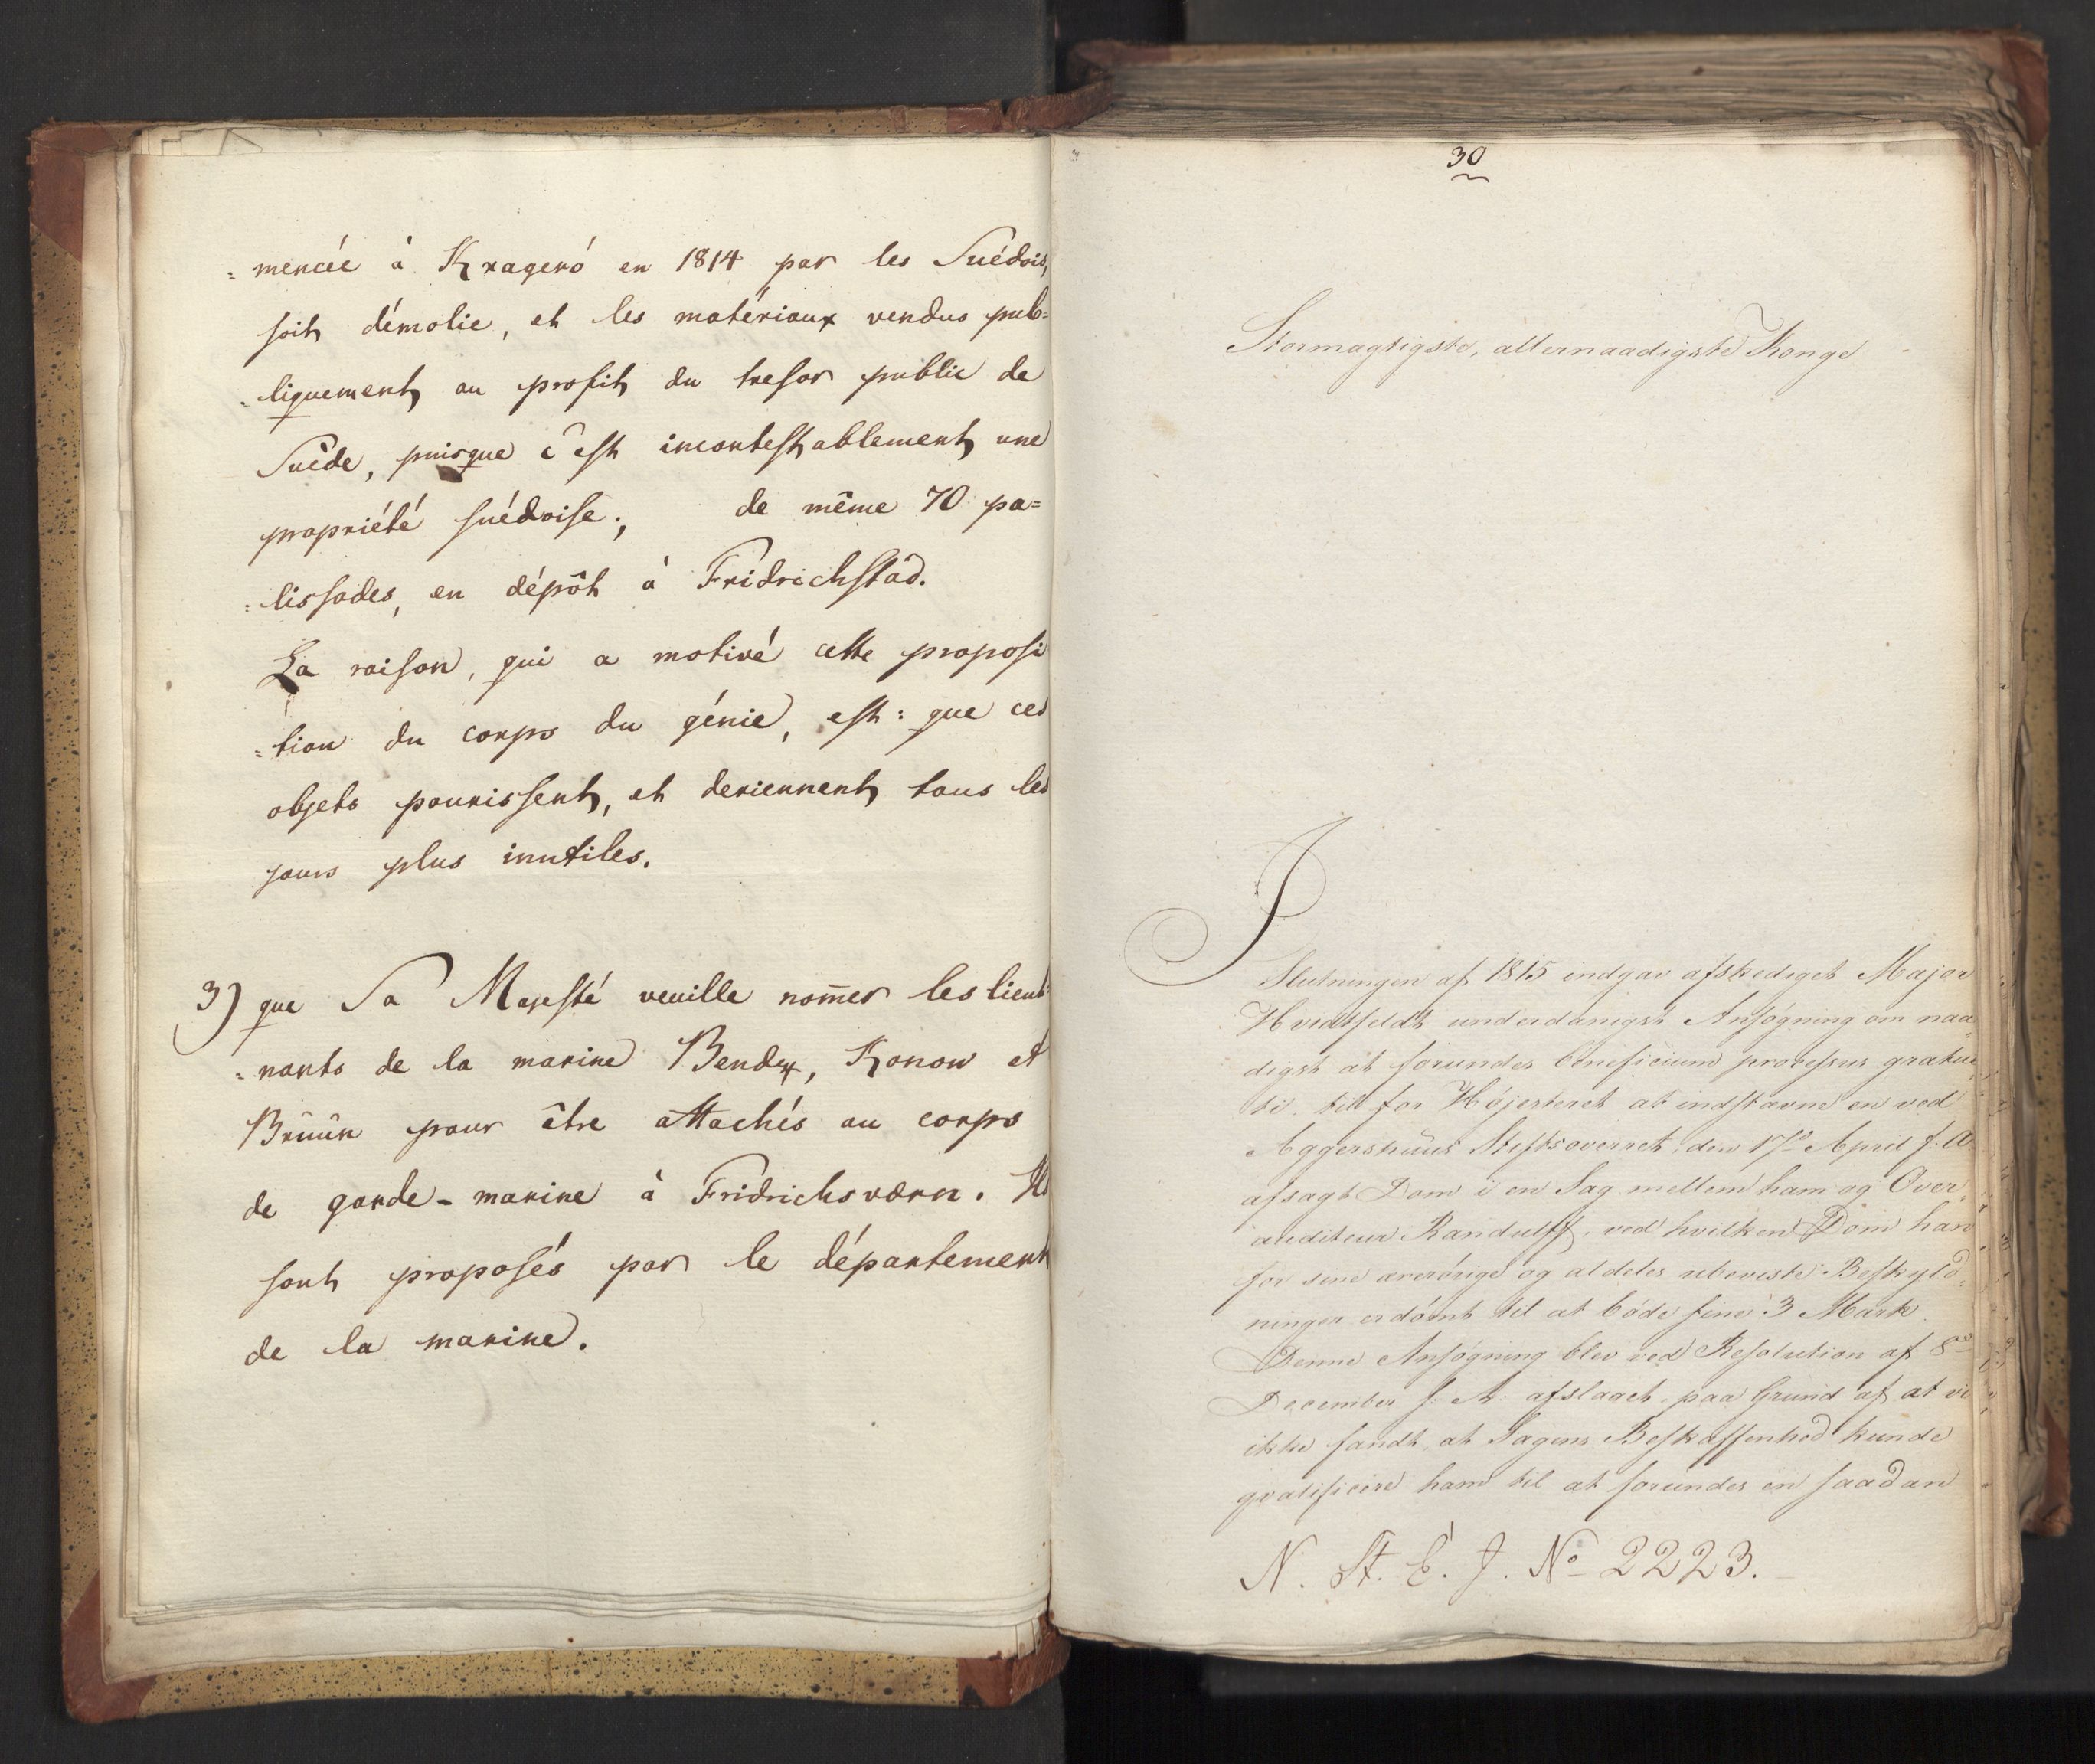 =mencée à Kragerö en 1814 par les Suédois,
soit démolie, et les matériaux vendus pub=
=liquement au profit du tresor public de
Suède, puisque c'est incontestablement une
propriété suédoise; de même 70 pa=
=lissades, en dépôt à Fridrichstad.
La raison, qui a motivé cette proposi
=tion du corps du génie, est: que ces
objets pourissent, et deviennent tous les
jours plus inutiles.
3) que Sa Majesté veuille nom̄er les lieut=
=nants de la marine Bendz, Konow et
Brüün pour être attachés au corps
de garde-marine à Fridrichsværn. Ils
sont proposés par le département
de la marine.
30
Stormægtigste, allernaadigste Konge
I
Slutningen af 1815 indgav afskediget Major
Hvidtfeldt underdanigst Ansøgning om naa=
digst at forundes beneficium processus gratui=
ti til for Højesteret at indstævne en ved
Aggershuus Stiftsoverret den 17de April s: A:
afsagt Dom i en Sag mellem ham og Over=
auditeur Randulff, ved hvilken Dom han
for sine ærerørige og aldeles ubeviste Beskyld=
ninger er dømt til at bøde sine 3 Mark.
Denne Ansøgning blev ved Resolution af 8de
December s: A: afslaaet paa Grund af, at vi
ikke fandt, at Sagens Beskaffenhed kunde
qvalificere ham til at forundes en saadan
N. St. E. J. No 2223.